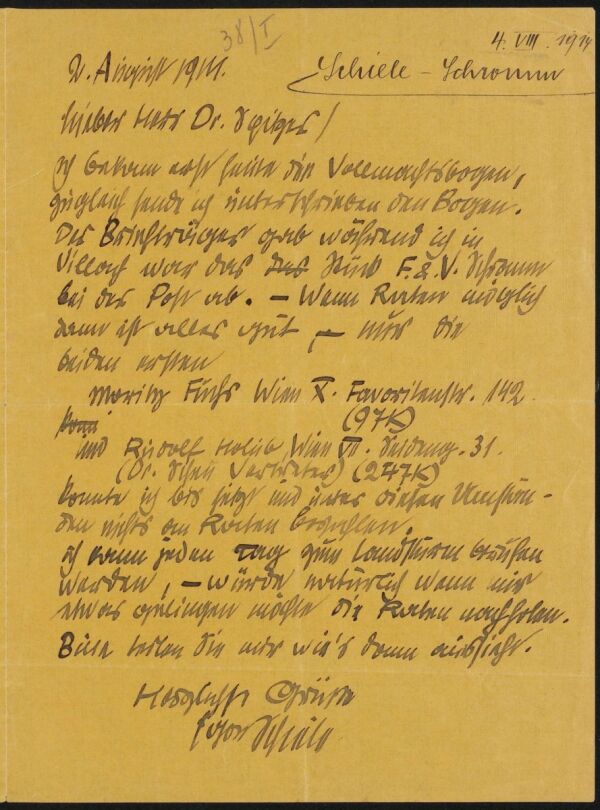 38/I
4. VIII. 1914
2. August 1914.
Schiele - Schramm
Lieber Herr Dr. Spitzer!
Ich bekam erst heute den Vollmachtsbogen,
zugleich sende ich unterschrieben den Bogen.
Der Briefträger gab während ich in
Villach war das das Stück F. & V. Schramm
bei der Post ab. – Wenn Raten möglich
dann ist alles gut, – nur die
beiden ersten
Moritz Fuchs Wien X. Favoritenstr. 142
(97K)
und Rudolf Holub Wien VII. Seideng. 31.
(Dr. Vertreter) (247K)
konnte ich bis jetzt und unter diesen Umstän-
den nichts an Raten bezahlen.
Ich kann jeden Tag zum Landsturm berufen
werden, – würde natürlich wenn mir
etwas gelingen möchte die Raten nachholen.
Bitte teilen Sie mir wie's dann aussieht.
Herzlichste Grüße
Egon Schiele